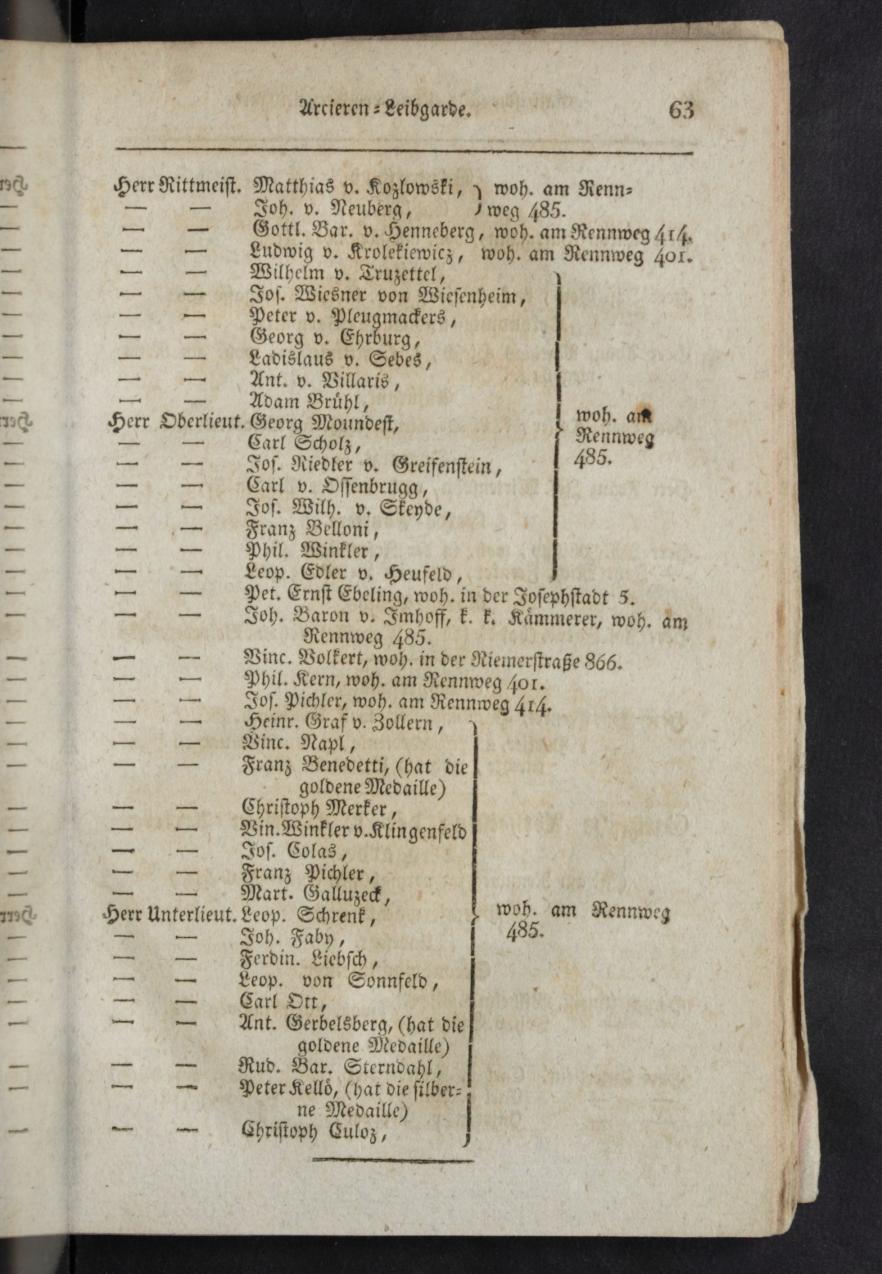 Arcieren-Leibgarde. 63
Herr Rittmeist. Matthias v. Kozlowski, } woh. am Renn-
— — Joh. v. Neuberg, } weg 485.
— — Gottl. Bar. v. Henneberg, woh. am Rennweg 414.
— — Ludwig v. Krolekiewicz, woh. am Rennweg 401.
— — Wilhelm v. Truzettel,
— — Jos. Wiesner von Wiesenheim,
— — Peter v. Pleugmackers,
— — Georg v. Ehrburg,
— — Ladislaus v. Sebes,
— — Ant. v. Villaris,
— — Adam Brühl,
Herr Oberlieut. Georg Moundest,
— — Carl Scholz,
— — Jos. Riedler v. Greifenstein,
— — Carl v. Ossenbrugg,
— — Jos. Wilh. v. Skeyde,
— — Franz Belloni,
— — Phil. Winkler,
— — Leop. Edler v. Heufeld,
woh. am
Rennweg
485.
— — Pet. Ernst Ebeling, woh. in der Josephstadt 5.
— — Joh. Baron v. Imhoff, k. k. Kämmerer, woh. am
Rennweg 485.
— — Vinc. Volkert, woh. in der Riemerstraße 866.
— — Phil. Kern, woh. am Rennweg 401.
— — Jos. Pichler, woh. am Rennweg 414.
— — Heinr. Graf v. Zollern,
— — Vinc. Napl,
— — Franz Benedetti, (hat die
goldene Medaille)
— — Christoph Merker,
— — Vin. Winkler v. Klingenfeld
— — Jos. Colas,
— — Franz Pichler,
— — Mart. Galluzeck,
Herr Unterlieut. Leop. Schrenk,
— — Joh. Faby,
— — Ferdin. Liebsch,
— — Leop. von Sonnfeld,
— — Carl Ott,
— — Ant. Gerbelsberg, (hat die
goldene Medaille)
— — Rud. Bar. Sterndahl,
— — Peter Kellö, (hat die silber-
ne Medaille)
— — Christoph Culoz,
woh. am Rennweg
485.